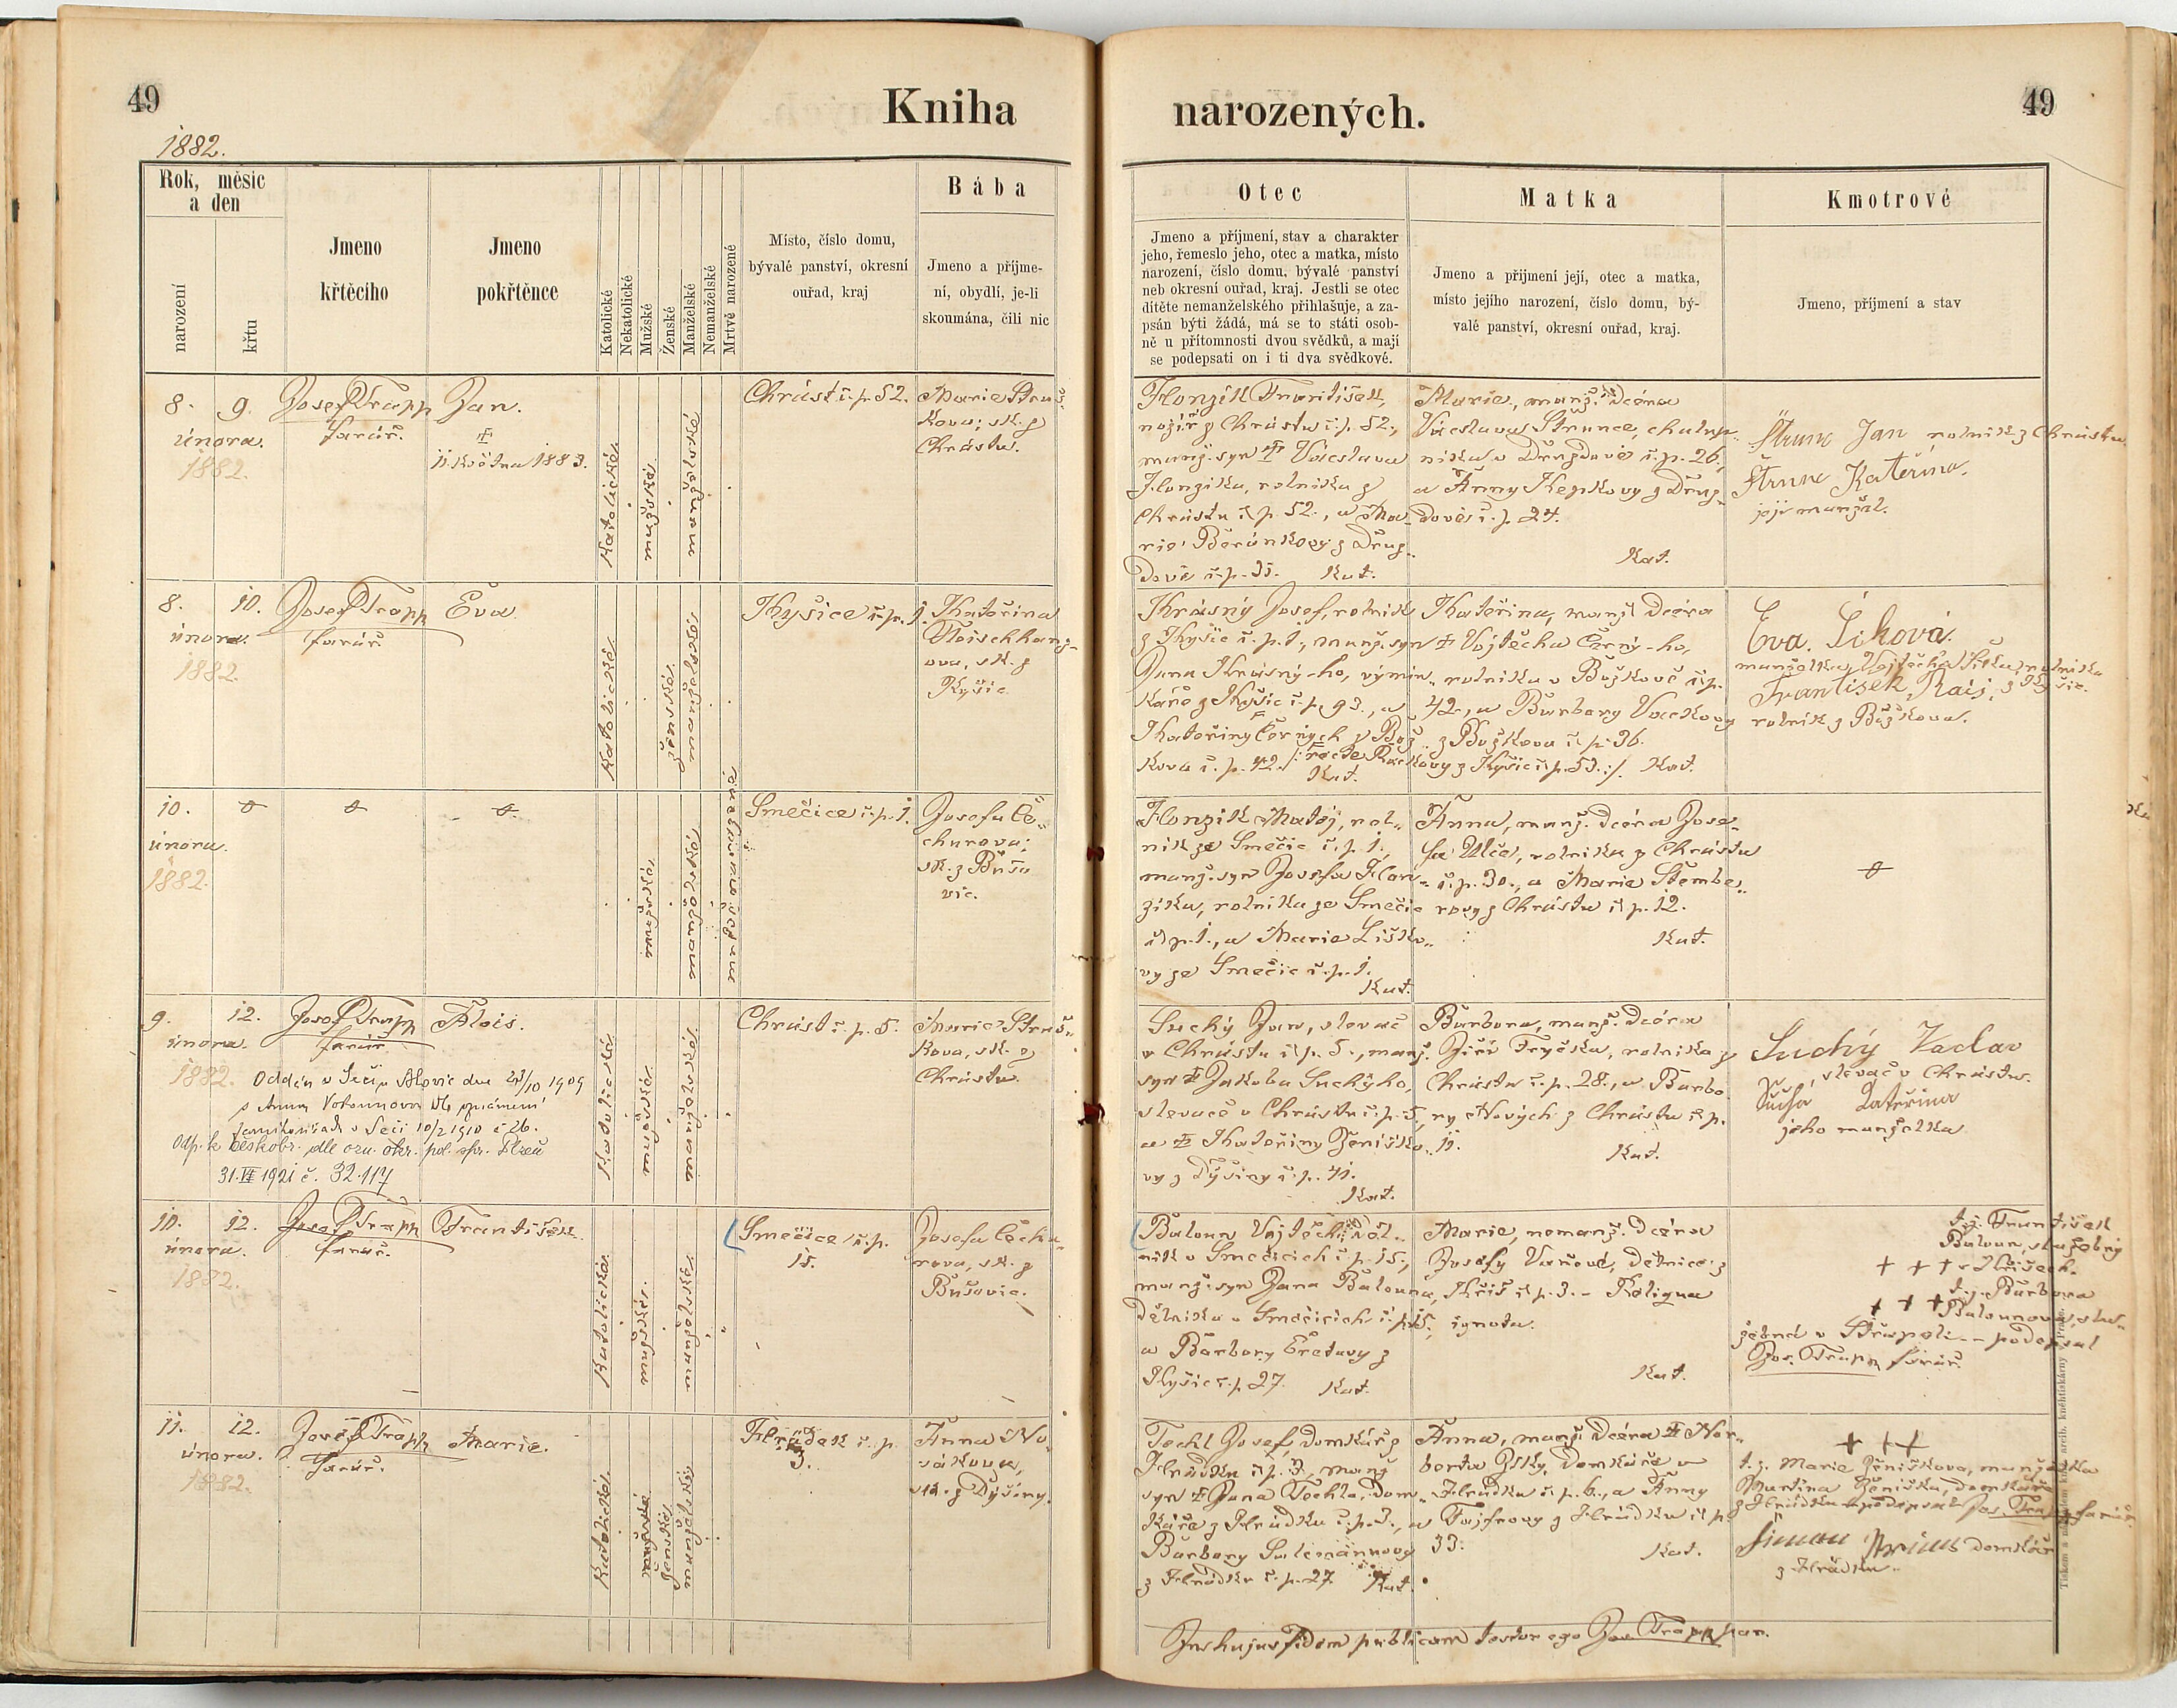 49
Kniha
narozených.
49
1882.
Rok, měsíc
a den
narození
křtu
Jmeno
křtěcího
Jmeno
pokřtěnce
Katolické
Nekatolické
Mužské
Ženské
Manželské
Nemanželské
Mrtvě narozené
Místo, číslo domu,
bývalé panství, okresní
ouřad, kraj
Bába
Jmeno a příjme-
ní, obydlí, je-li
skoumána, čili nic
Otec
Jmeno a příjmení, stav a charakter
jeho, řemeslo jeho, otec a matka, místo
narození, číslo domu, bývalé panství
neb okresní ouřad, kraj. Jestli se otec
dítěte nemanželského přihlašuje, a za-
psán býti žádá, má se to státi osob-
ně u přítomnosti dvou svědků, a mají
se podepsati on i ti dva svědkové.
Matka
Jmeno a příjmení její, otec a matka,
místo jejího narození, číslo domu, bý-
valé panství, okresní ouřad, kraj.
Kmotrové
Jmeno, příjmení a stav
8. 9.
února.
1882.
Josef Trapp
farář.
Jan.
11. května 1883.
Katolické.
mužské.
manželské.
Chrást č. p. 52.
Marie Struž-
kova; zk. z
Chrástu.
Honzík František,
nožíř z Chrástu č. p. 52.,
manž. syn Václava
Honzíka, rolníka z
Chrástu č. p. 52., a Ma-
rie Beránkovy z Druz-
dově č. p. 35. Kat.
Marie, manž. dcéra
Václava Štrunce, chalup-
níka v Druzdově č. p. 26.,
a Anny Kepkovy z Druz-
dově č. p. 24.
Kat.
Štrunc Jan rolník z Chrástu
Štrunc Kateřina.
její manžel.
8. 10.
února.
1882.
Josef Trapp
farář.
Eva.
Katolické.
ženské.
manželské.
Kyšice č. p. 1.
Kateřina
ova, zk. z
Kyšic.
Krásný Josef, rolník
z Kyšic č. p. 1., manž. syn
Jana Krásný-ho, výmin-
káře z Kyšic č. p. 93., a
Kateřiny Černých z Bož-
kova č. p. 42. /: recte Rackovy z Kyšic č. p. 53. :/.
Kat.
Kateřina, manž. dcéra
Vojtěcha Černý-ho,
rolníka v Božkově č. p.
42., a Barbory Vackovy
z Božkova č. p. 36.
Kat.
Eva Šiková.
manželka Vojtěcha Šika, rolníka
z Kyšic.
František Rais,
rolník z Božkova.
10.
února.
1882.
mužské.
manželské.
mrtvě narozené.
Smečice č. p. 1.
Josefa Če-
churova;
zk. z Bušo-
vic.
Honzík Matěj, rol-
ník ze Smečic č. p. 1.,
manž. syn Josefa Hon-
zíka, rolníka ze Smečic
č. p. 1., a Marie Liško-
vy ze Smečic č. p. 1.
Kat.
Anna, manž. dcéra Jose-
fa Ulče, rolníka z Chrástu
č. p. 30., a Marie Štembe-
rovy z Chrástu č. p. 12.
Kat.
9. 12.
února.
1882.
Josef Trapp
farář.
Alois.
Oddán v Seči u Blovic dne 23/10 1909
31.VII 1921 č. 32.117
Katolické
mužské.
manželské.
Chrást č. p. 5.
Marie Struž-
kova, zk. z
Chrástu.
Suchý Jan, slevač
v Chrástu č. p. 5., manž.
syn Jakoba Suchýho,
slevače v Chrástu č. p. 5,
a Kateřiny Ženíško-
vy z Dýšiny č. p. 41.
Kat.
Barbora, manž. dcéra
Jiří Tryčka, rolníka z
Chrástu č. p. 28., a Barbo-
ry Nových z Chrástu č. p.
11.
Kat.
Suchý Václav
slevač v Chrástu.
Suchá Kateřina
jeho manželka.
10. 12.
února.
1882.
Josef Trapp
farář.
František.
Katolické.
mužské.
manželské.
Smečice č. p.
15.
Josefa Čechu-
rova, zk. z
Bušovic.
Baloun Vojtěch, rol-
ník v Smečicích č. p. 15.,
manž. syn Jana Balouna,
dělníka v Smečicích č. p. 15.,
a Barbory Cretavy z
Kyšic č. p. 27. Kat.
Marie, nemanž. dcéra
Josefy Vaňové, dělnice z
Kříš č. p. 3. – Religua
ignota.
Kat.
t. j. František
Baloun, služebný
+ + + v Kříšech.
t. j. Barbora
+ + + Balounova, slu-
žebná v Střapoli – podepsal
Jos. Trapp farář.
11. 12.
února.
1882.
Josef Trapp
farář.
Marie.
Katolické.
mužské
ženské.
manželské.
Hrádek č. p.
3.
Anna No-
vákova,
zk. z Dýšiny.
Techl Josef, domkář z
Hrádku č. p. 3, manž.
syn Jana Techla, dom-
káře z Hrádku č. p. 3., a
Barbory Sulemannovy
z Hrádku č. p. 27. Kat.
Anna, manž. dcéra Nor-
berta Zisky, domkáře v
Hrádku č. p. 6., a Anny
Tajfrovy z Hrádku č. p.
33.
Kat.
+ + +
t. j. Marie Ženíškova, manželka
Martina Ženíška, domkáře
z Hrádku – podepsal Jos. Trapp farář.
Šimon domkář
z Hrádku.
In hujus fidem publicam testor ego Jos. Trapp par.